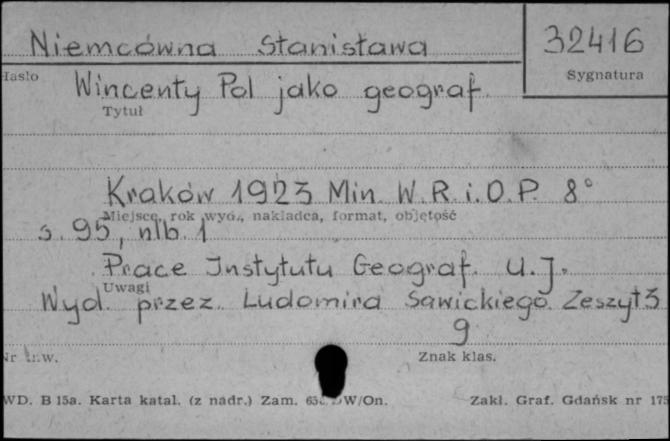 Niemcówna Stanisława
32416
Hasło
Sygnatura
Wincenty Pol jako geograf.
Tytuł
Kraków 1923 Min. W.R.i.O.P. 8°
Miejsce, rok wyd., nakładca, format, objętość
s. 95, nlb. 1
Prace Instytutu Geograf. U.J.
Uwagi
Wyd. przez Ludomira Sawickiego. Zeszyt 3
9
Nr inw.
Znak klas.
WD. B 15a. Karta katal. (z nadr.) Zam. W/On.
Zakł. Graf. Gdańsk nr 175